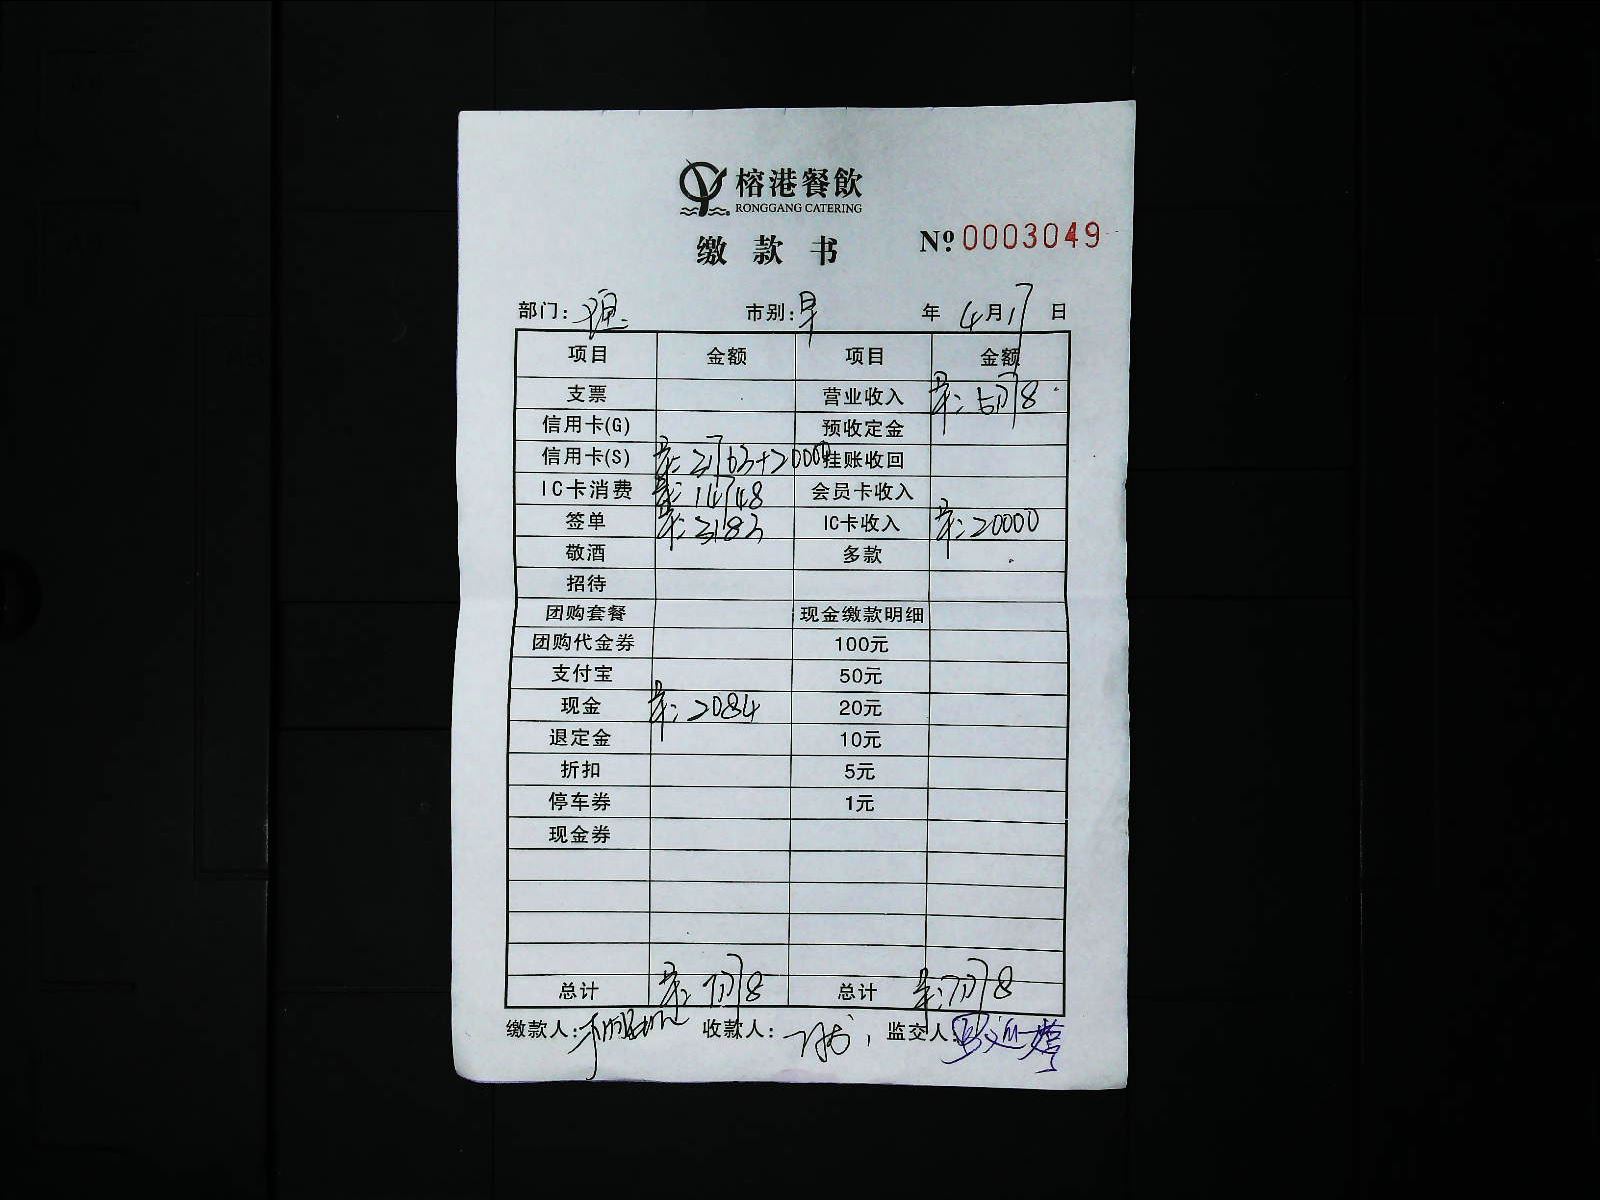 榕港餐飲
RONGGANG CATERING
缴款书
№ 0003049
部门： 市别：早 年 4月17日
项目 金额 项目 金额
支票 营业收入
信用卡(G) 预收定金
信用卡(S) 挂账收回
IC卡消费 14748 会员卡收入
签单 IC卡收入 20000
敬酒 多款
招待
团购套餐 现金缴款明细
团购代金券 100元
支付宝 50元
现金 2084 20元
退定金 10元
折扣 5元
停车券 1元
现金券
总计 总计
缴款人： 收款人： 监交人：